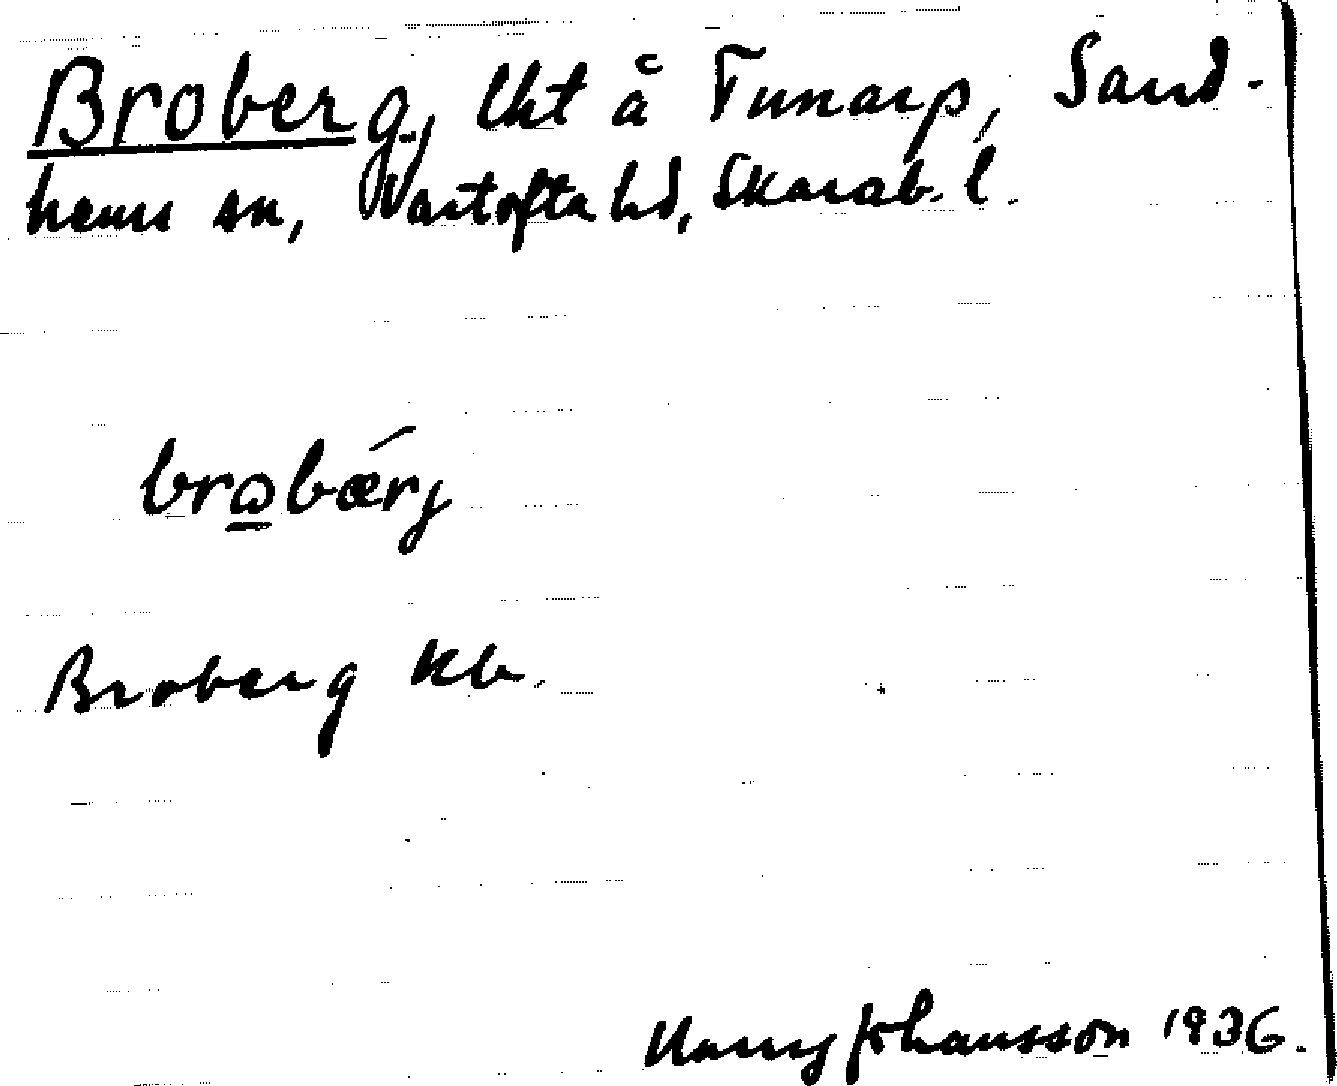 Broberg, lht å Tunarp, Sand-
hems sn, Vartofta hd, Skarab. l.
brωbǽrj
Broberg Kb.
Harry Johansson 1936.